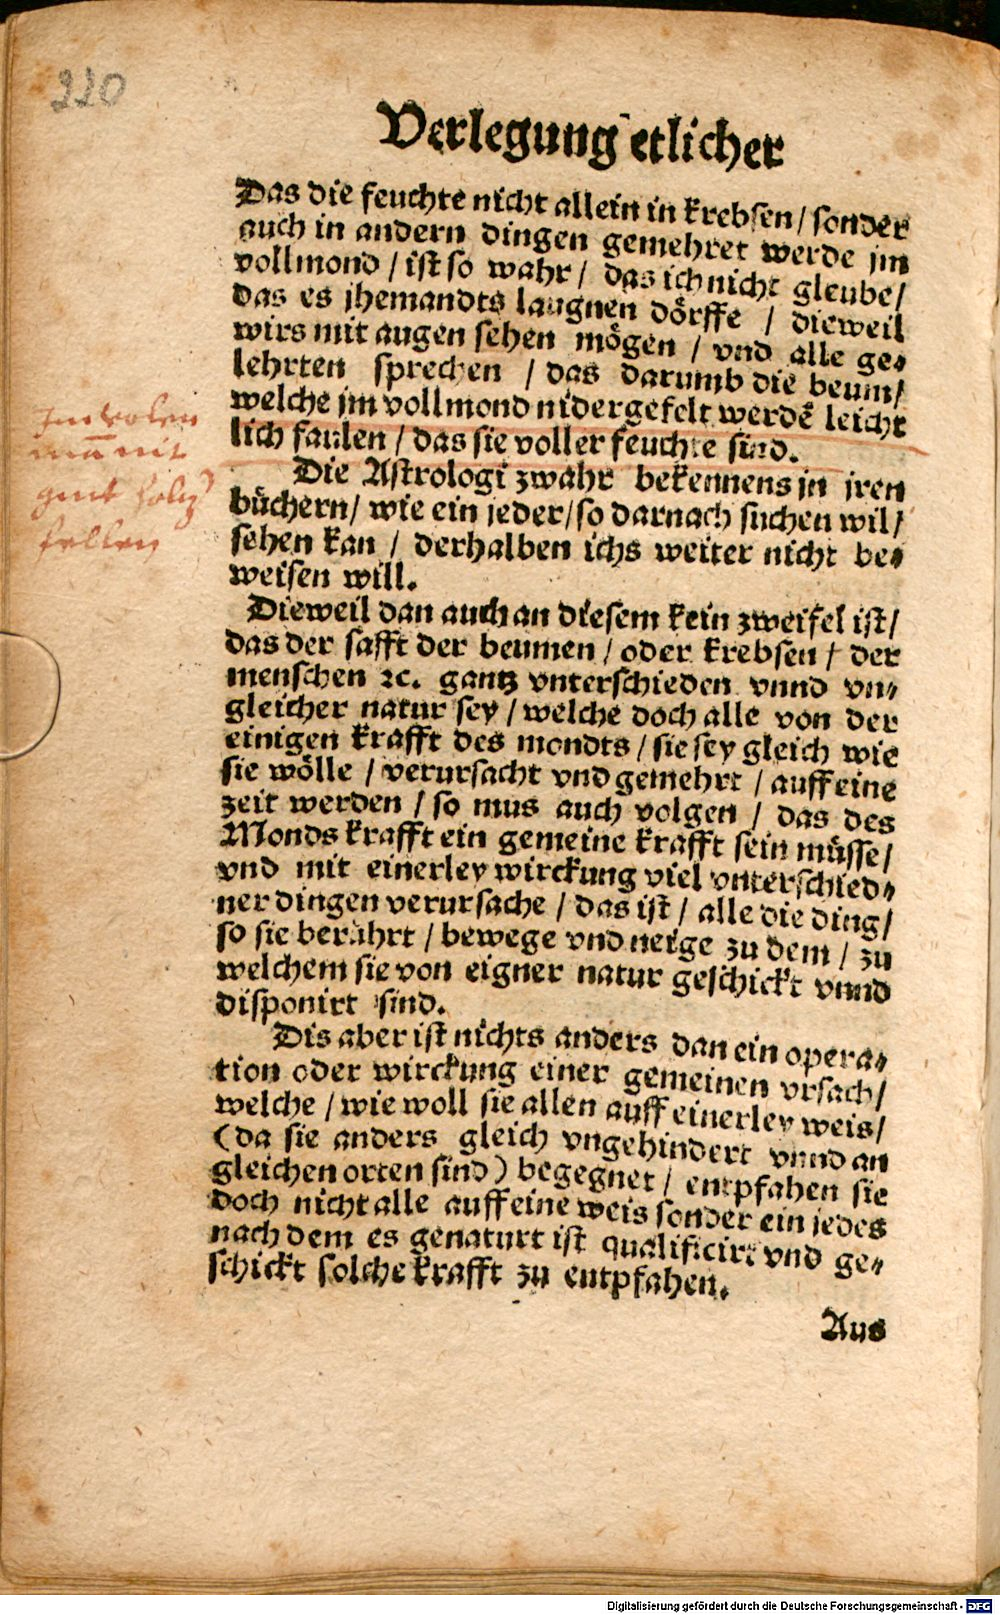 220
Verlegung etlicher
Das die feuchte nicht allein in krebsen / sonder
auch in andern dingen gemehret werde jm
vollmond / ist so wahr / das ich nicht gleube /
das es jhemandts laugnen dörffe / dieweil
wirs mit augen sehen mögen / vnd alle ge⸗
lehrten sprechen / das darumb die beum /
welche jm vollmond nidergefelt werdē leicht
lich faulen / das sie voller feuchte sind.
Im volen
mā nit
gut holtz
fellen
Die Astrologi zwahr bekennens jn jren
büchern / wie ein jeder / so darnach suchen wil /
sehen kan / derhalben ichs weiter nicht be⸗
weisen will.
Dieweil dan auch an diesem kein zweifel ist /
das der safft der beumen / oder krebsen / der
menschen ꝛc. gantz vnterschieden vnnd vn⸗
gleicher natur sey / welche doch alle von der
einigen krafft des mondts / sie sey gleich wie
sie wölle / verursacht vnd gemehrt / auff eine
zeit werden / so mus auch volgen / das des
Monds krafft ein gemeine krafft sein müsse /
vnd mit einerley wirckung viel vnterschied⸗
ner dingen verursache / das ist / alle die ding /
so sie berührt / bewege vnd neige zu dem / zu
welchem sie von eigner natur geschickt vnnd
disponirt sind.
Dis aber ist nichts anders dan ein opera⸗
tion oder wirckung einer gemeinen vrsach /
welche / wie woll sie allen auff einerley weis /
(da sie anders gleich vngehindert vnnd an
gleichen orten sind) begegnet / entpfahen sie
doch nicht alle auff eine weis sonder ein jedes
nach dem es genaturt ist qualificirt vnd ge⸗
schickt solche krafft zu entpfahen.
Aus
Digitalisierung gefördert durch die Deutsche Forschungsgemeinschaft - DFG